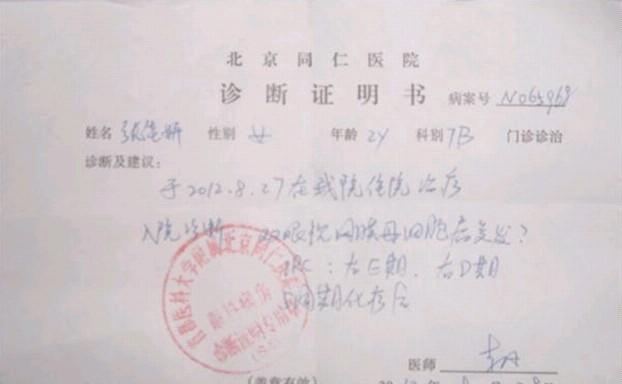 北京同仁医院
诊断证明书 病案号 N065969
姓名 性别 女 年龄 2Y 科别 7B 门诊诊治
诊断及建议：
于2012.8.27在我院住院治疗
入院诊断 双眼视网膜母细胞瘤复发？
IRC：左E期，右D期
周期化疗后
首都医科大学附属北京同仁医院
医师
(盖章有效)